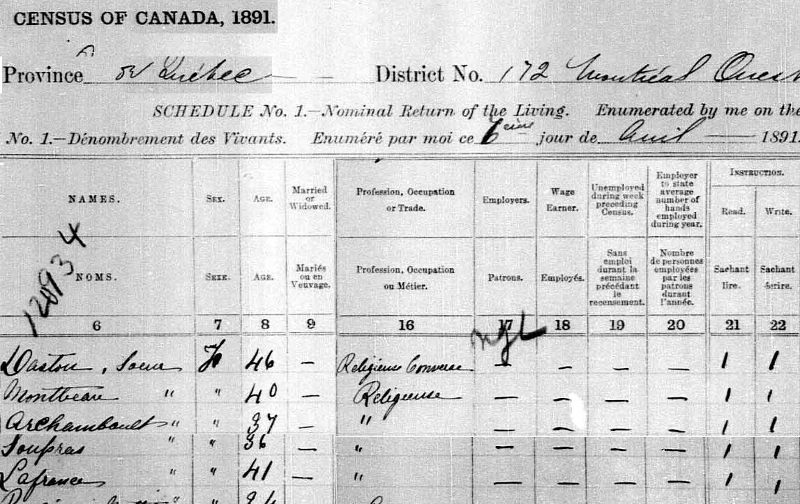 CENSUS OF CANADA, 1891.
Province de Québec District No. 172 Montréal Ouest
SCHEDULE No. 1.—Nominal Return of the Living. Enumerated by me on the
No. 1.—Dénombrement des Vivants. Enuméré par moi ce 6ième jour de Avril 1891.
NAMES. SEX. AGE. Married or Widowed. Profession, Occupation or Trade. EMPLOYERS. WAGE EARNER. Unemployed during week preceding Census. Employer to state average number of hands employed during year. INSTRUCTION. Read. Write.
NOMS. SEXE. AGE. Mariés ou en Veuvage. Profession, Occupation ou Métier. PATRONS. EMPLOYÉS. Sans emploi durant la semaine précédant le recensement. Nombre de personnes employées par les patrons durant l'année. Sachant lire. Sachant écrire.
12093 4
6 7 8 9 16 17 18 19 20 21 22
Soeur F 46 — Religieuse Converse — — — — 1 1
Montbeau " " 40 — Religieuse — — — — 1 1
Archambault " " 37 — " — — — — 1 1
Soupras " " 36 — " — — — — 1 1
Lafrance " " 41 — " — — — — 1 1